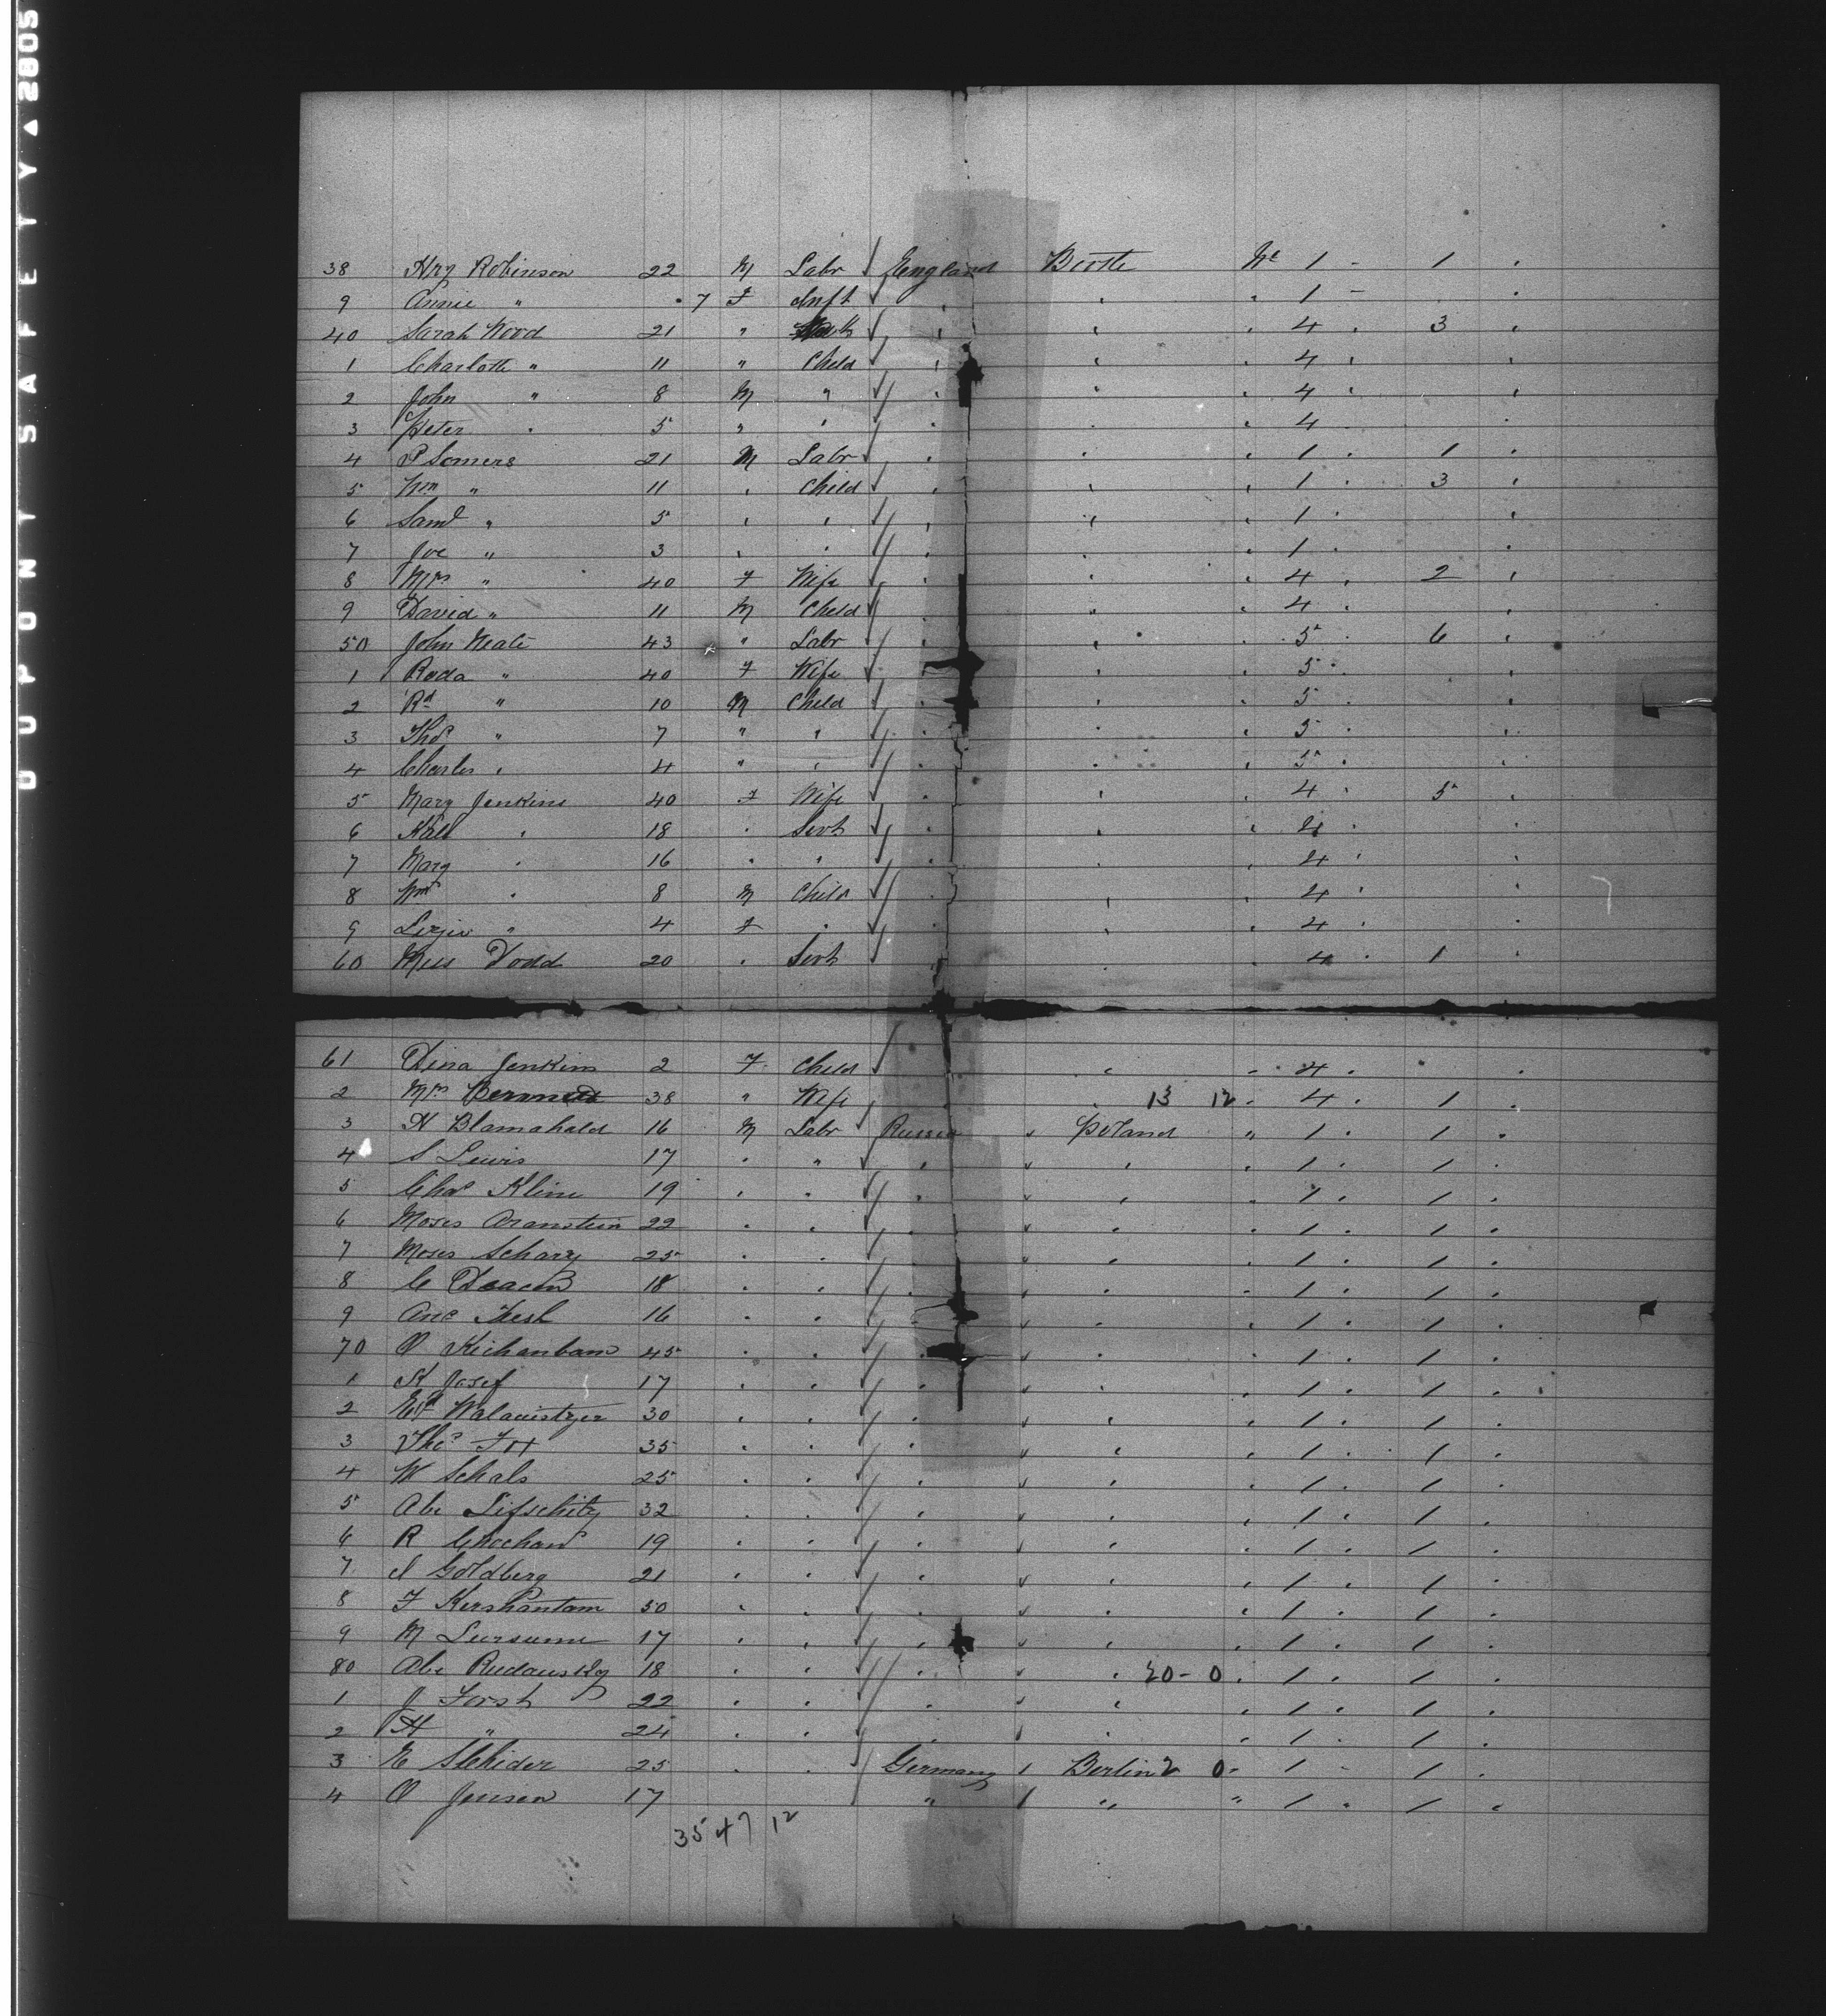 DUPONT SAFETY ▲ 2805
38 Hry Robinson 22 M Labr England Bootle 1 - 1
9 Annie " 7 F Inft " 1 -
40 Sarah Wood 21 " " " 4 3
1 Charlotte " 11 " Child " " 4
2 John " 8 M " " " 4
3 Peter " 5 " " " " 4
4 P Somers 21 M Labr " " 1 1
5 Wm " 11 " Child " " 1 3
6 Saml " 5 " " " " 1
7 Joe " 3 " " " " 1
8 Mrs " 40 F Wife " " 4 2
9 David " 11 M Child " " 4
50 John Neale 43 " Labr " " 5 6
1 Roda " 40 F Wife " " 5
2 Rd " 10 M Child " " 5
3 Thos " 7 " " " " 5
4 Charles " 4 " " " " 5
5 Mary Jenkins 40 F Wife " " 4 5
6 Kate " 18 " Servt " " 4
7 Mary " 16 " " " " 4
8 Wm " 8 M Child " " 4
9 Lizzie " 4 F " " " 4
60 Miss Dodd 20 " Servt " 4 1
61 Dina Jenkins 2 F Child " 4
2 Mrs Bennett 38 " Wife " 13 12 4 1
3 H Blamahald 16 M Labr Russia " Poland " 1 1
4 S Lewis 17 " " " " " " 1 1
5 Chas Kline 19 " " " " " " 1 1
6 Moses Aranstein 22 " " " " " " 1 1
7 Moses Schary 25 " " " " " " 1 1
8 C Deacon 18 " " " " " " 1 1
9 16 " " " " " " 1 1
70 O Kichanbam 45 " " " " " " 1 1
1 K Josef 17 " " " " " " 1 1
2 Ed 30 " " " " " " 1 1
3 Thos Fox 35 " " " " " " 1 1
4 W Schals 25 " " " " " " 1 1
5 Abe Lifschitz 32 " " " " " " 1 1
6 R 19 " " " " " " 1 1
7 I Goldberg 21 " " " " " " 1 1
8 F Kershantam 50 " " " " " " 1 1
9 M 17 " " " " " " 1 1
80 Abe Rudausky 18 " " " " " 20 - 0 1 1
1 J Forsh 22 " " " " " " 1 1
2 H " 24 " " " " " " 1 1
3 E Schider 25 " " Germany " Berlin 2 0 - 1 1
4 O Jensen 17 " " " " 1 1
35 47 12